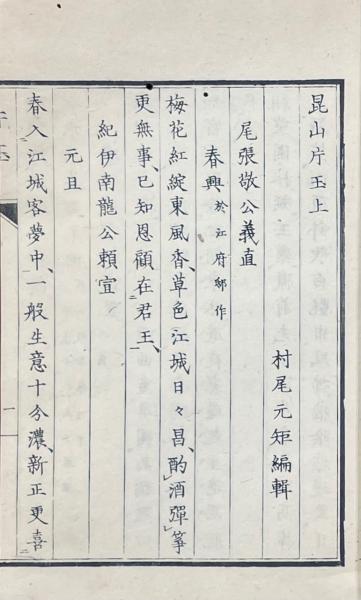 昆山片玉上
村尾元矩編輯
尾張敬公義直
春興於江府邸作
梅花紅綻東風香、草色江城日々昌、酌酒彈箏
更無事、已知恩顧在君王、
紀伊南龍公賴宣
元旦
春入江城客夢中、一般生意十分濃、新正更喜
一